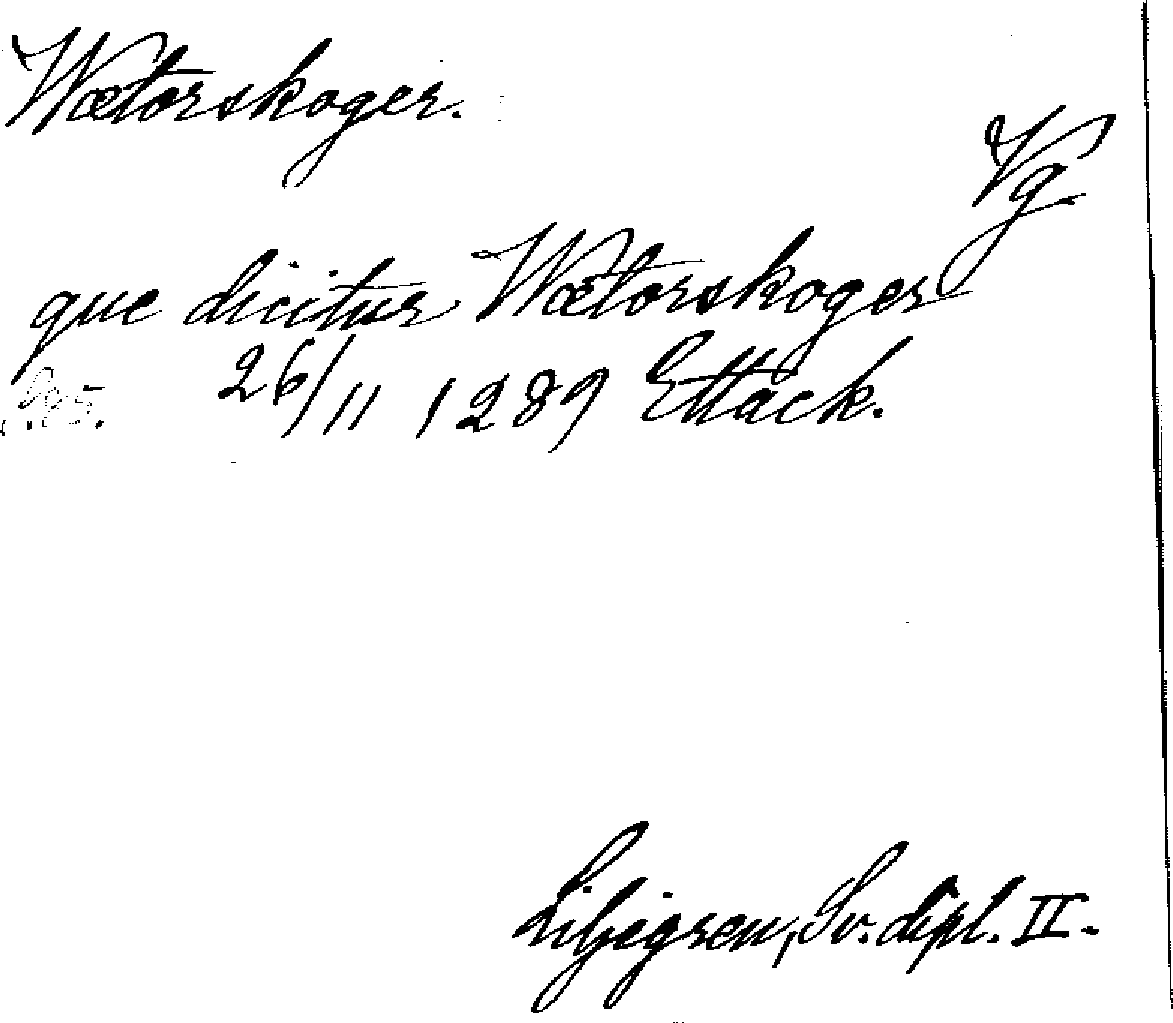 Wætorskoger.
Vg.
que dicitur Wætorskoger
26/11 1289 Ettack.
Liljegren, Sv. dipl. II.